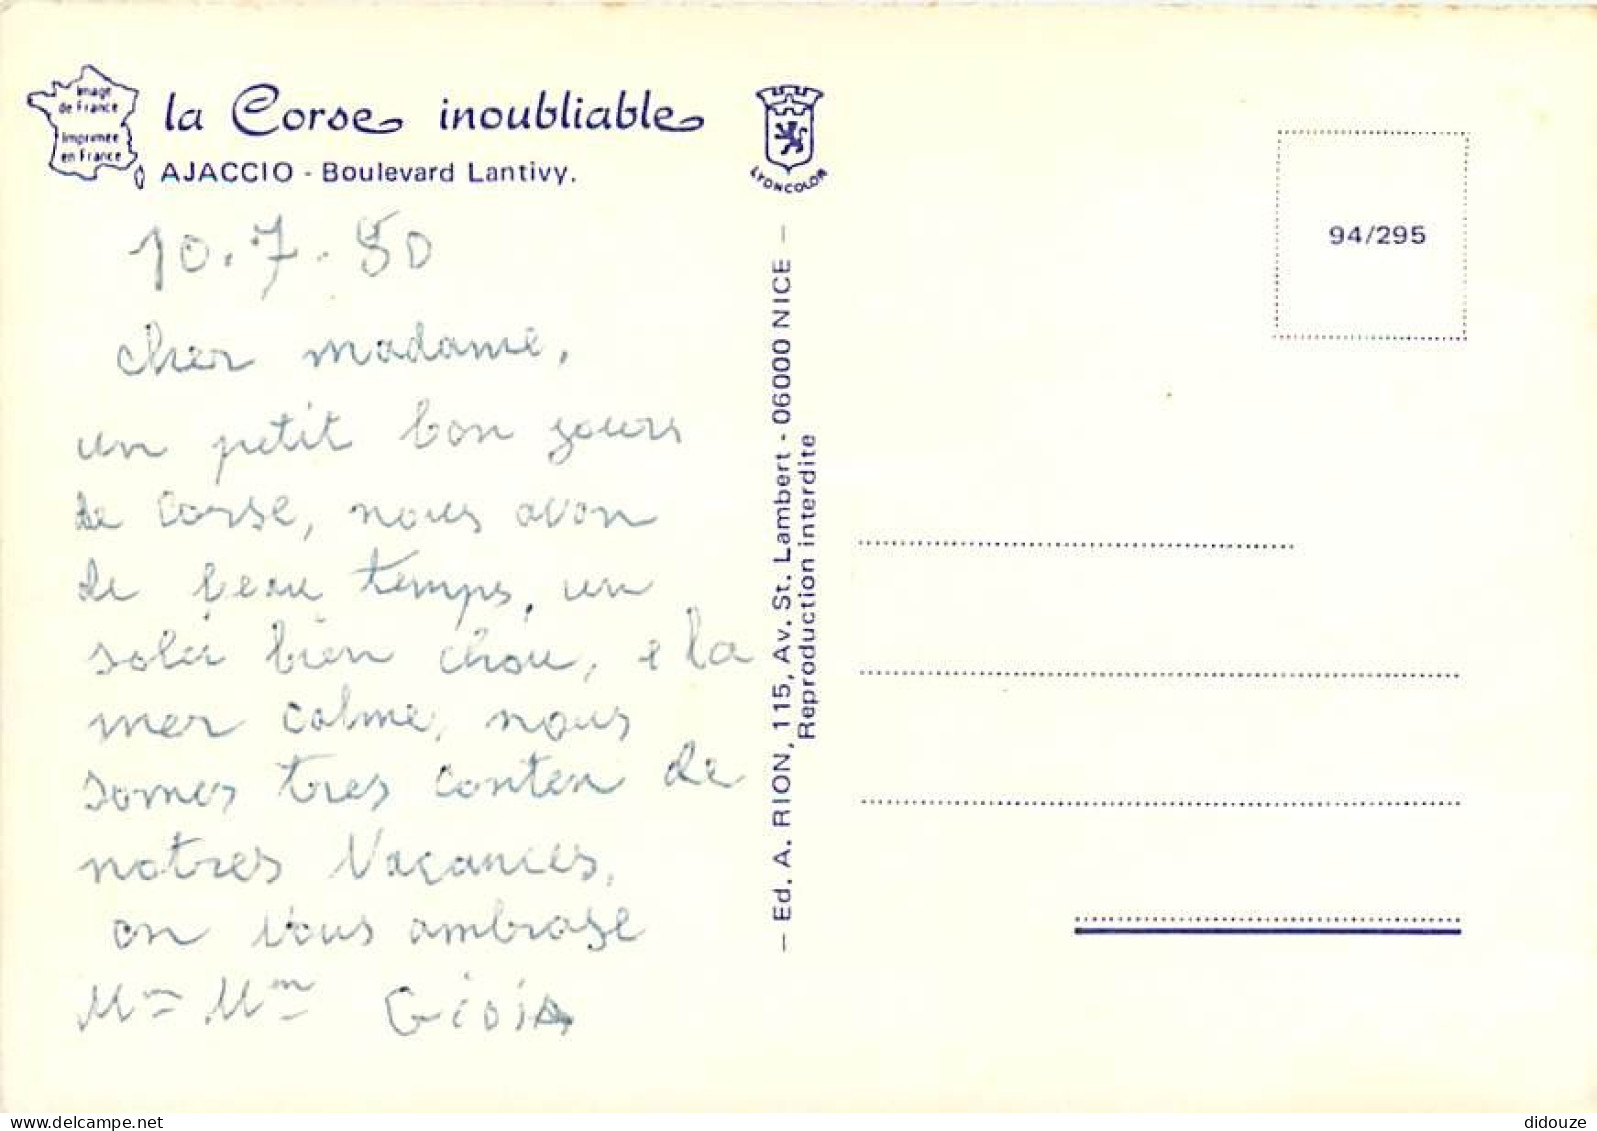 Image
de France
Imprimée
en France
la Corse inoubliable
AJACCIO - Boulevard Lantivy.
LYONCOLOR
94/295
10.7.80
cher madame,
un petit bon jours
de corse, nous avon
de beau temps, un
soleir bien chou, e la
mer calme, nous
somes tres conten de
notres Vacances,
on vous ambrase
Mr = Mm Gioia
— Ed. A. RION, 115, Av. St. Lambert - 06000 NICE —
Reproduction interdite
didouze